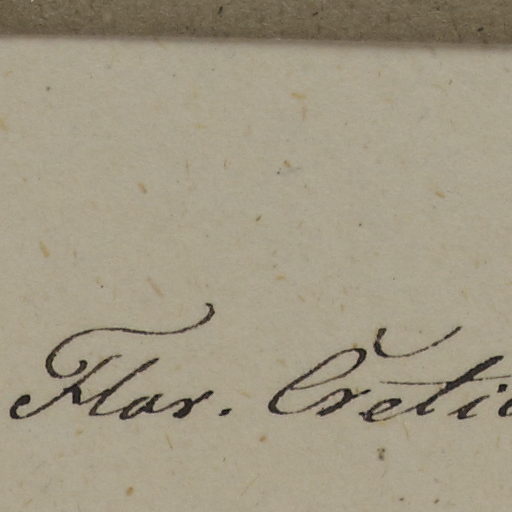 Flor. Cretic